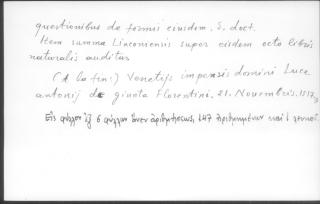 questionibus de formis eiusdem S. doct.
Item summa Linconiensis super eisdem octo libris
naturalis auditus
(A la fin:) Venetijs impensis domini Luce
antonij de giunta Florentini. 21. Novembris. 1517,
Εἰς φύλλον 6 φύλλα ἄνευ ἀριθμήσεως, 147 ἠριθμημένα καὶ 1